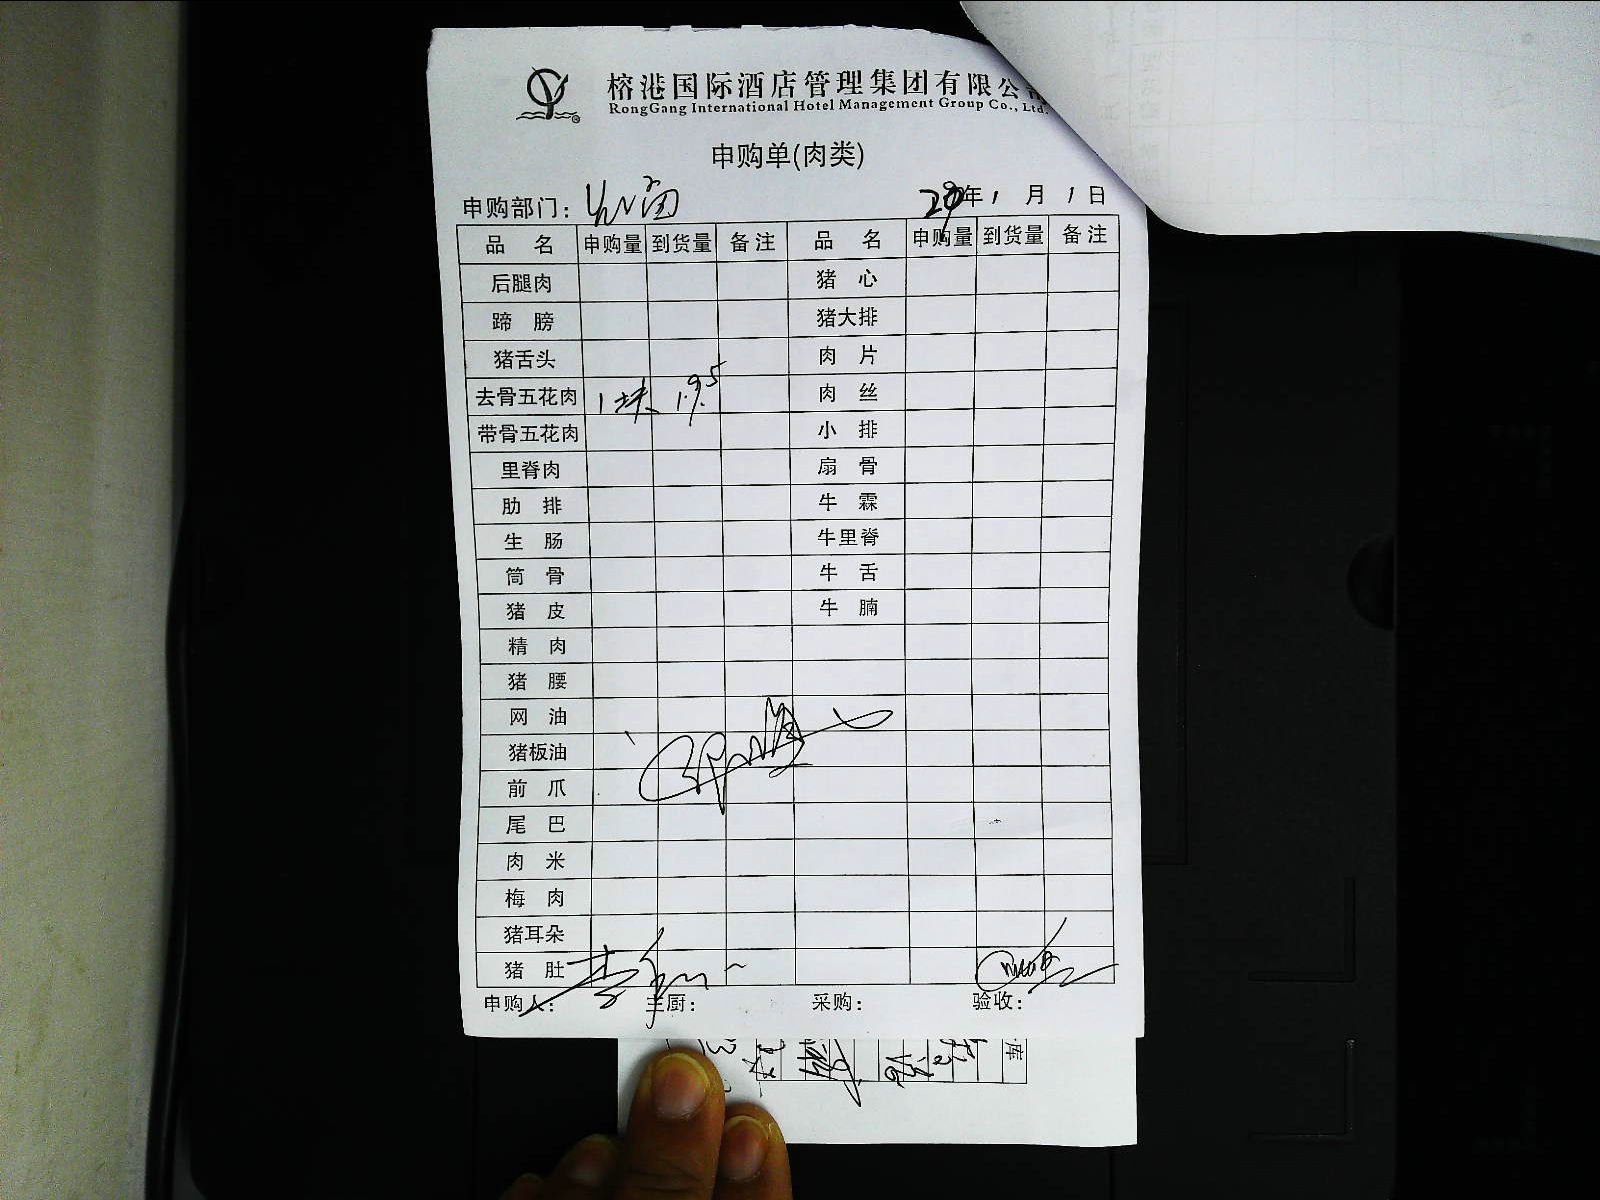 榕港国际酒店管理集团有限公
RongGang International Hotel Management Group Co., Ltd.
申购单(肉类)
申购部门: 年 1 月 1 日
品 名 申购量 到货量 备注 品 名 申购量 到货量 备注
后腿肉 猪 心
蹄 膀 猪大排
猪舌头 肉 片
去骨五花肉 1块 19.5 肉 丝
带骨五花肉 小 排
里脊肉 扇 骨
肋 排 牛 霖
生 肠 牛里脊
筒 骨 牛 舌
猪 皮 牛 腩
精 肉
猪 腰
网 油
猪板油
前 爪
尾 巴
肉 米
梅 肉
猪耳朵
猪 肚
申购人: 主厨: 采购: 验收:
库